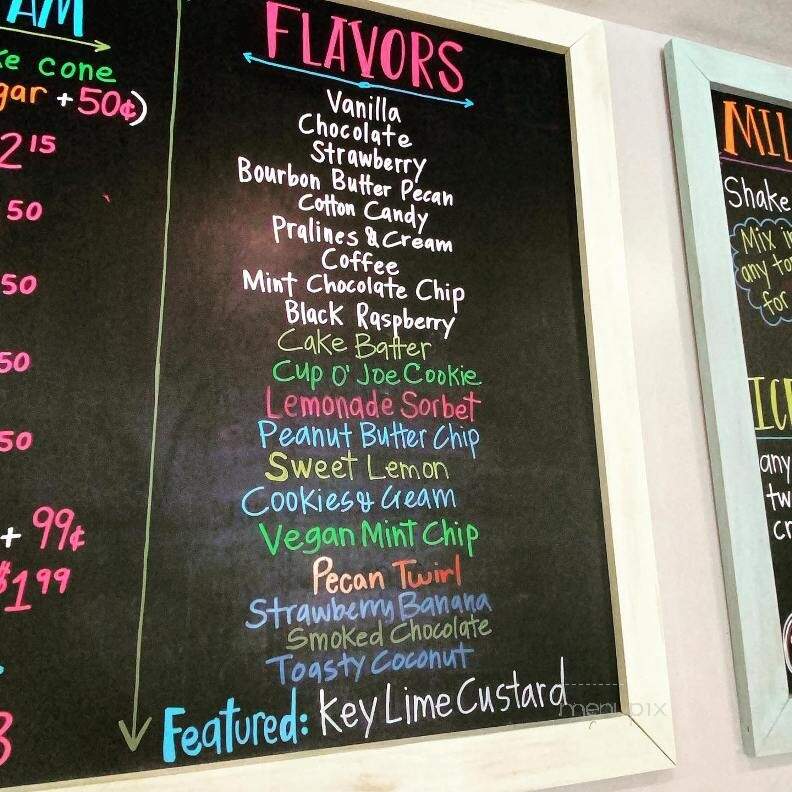 AM
ke cone
gar + 50¢)
2 15
50
50
50
50
+ 99¢
$1 99
3
FLAVORS
Vanilla
Chocolate
Strawberry
Bourbon Butter Pecan
Cotton Candy
Pralines & Cream
Coffee
Mint Chocolate Chip
Black Raspberry
Cake Batter
Cup O' Joe Cookie
Lemonade Sorbet
Peanut Butter Chip
Sweet Lemon
Cookies & Cream
Vegan Mint Chip
Pecan Twirl
Strawberry Banana
Smoked Chocolate
Toasty Coconut
Featured: Key Lime Custard
menupix
MIL
Shake
Mix in
any to
for
ICE
any
tw
cr